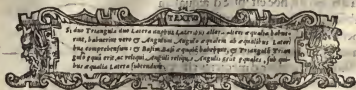 TEXTVS
Si duo Triangula duo Latera duobus Lateribus alterũ alteri æqualia habue-
rint, habuerint vero & Angulum Angulo æqualem ab æqualibus Lateri
bus comprehensum: & Basim Basi æqualẽ habebunt, & Triangulũ Trian
gulo æquale erit, ac reliqui Anguli reliquis Angulis erũt æquales, sub qui-
bus æqualia Latera subtenduntur.